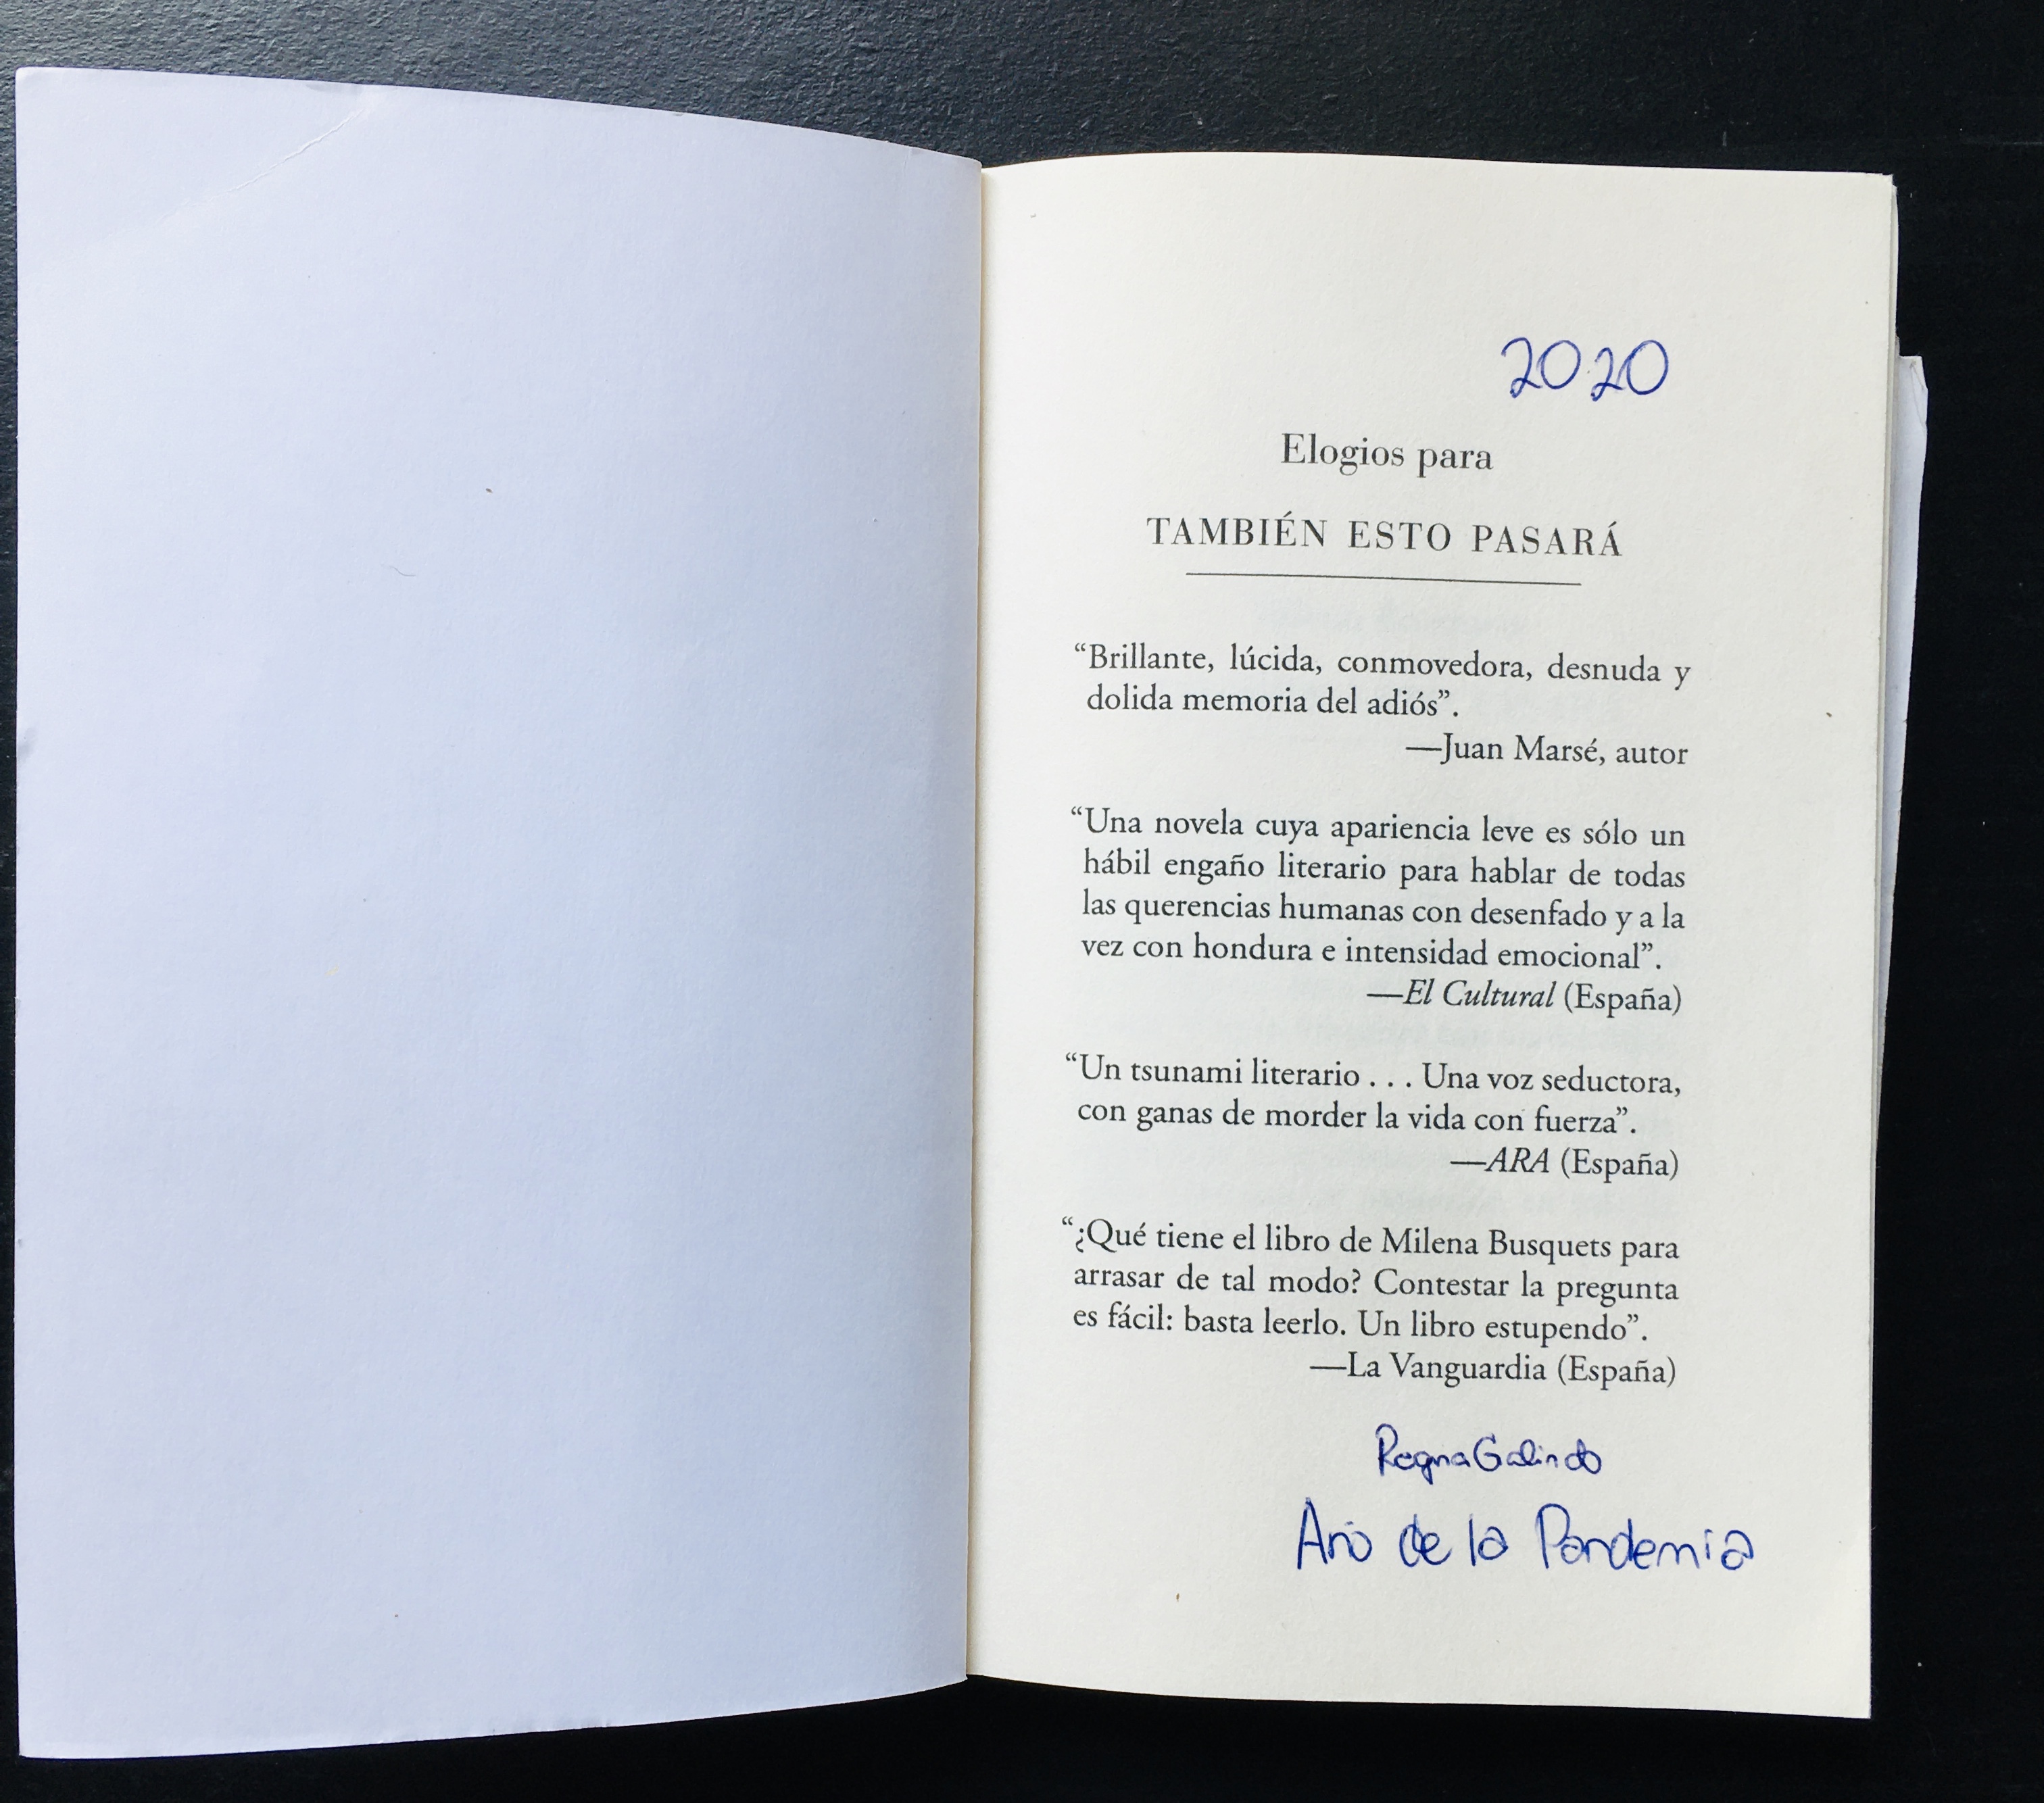 2020
Elogios para
TAMBIÉN ESTO PASARÁ
“Brillante, lúcida, conmovedora, desnuda y
dolida memoria del adiós”.
—Juan Marsé, autor
“Una novela cuya apariencia leve es sólo un
hábil engaño literario para hablar de todas
las querencias humanas con desenfado y a la
vez con hondura e intensidad emocional”.
—El Cultural (España)
“Un tsunami literario . . . Una voz seductora,
con ganas de morder la vida con fuerza”.
—ARA (España)
“¿Qué tiene el libro de Milena Busquets para
arrasar de tal modo? Contestar la pregunta
es fácil: basta leerlo. Un libro estupendo”.
—La Vanguardia (España)
Galindo
Año de la Pandemia